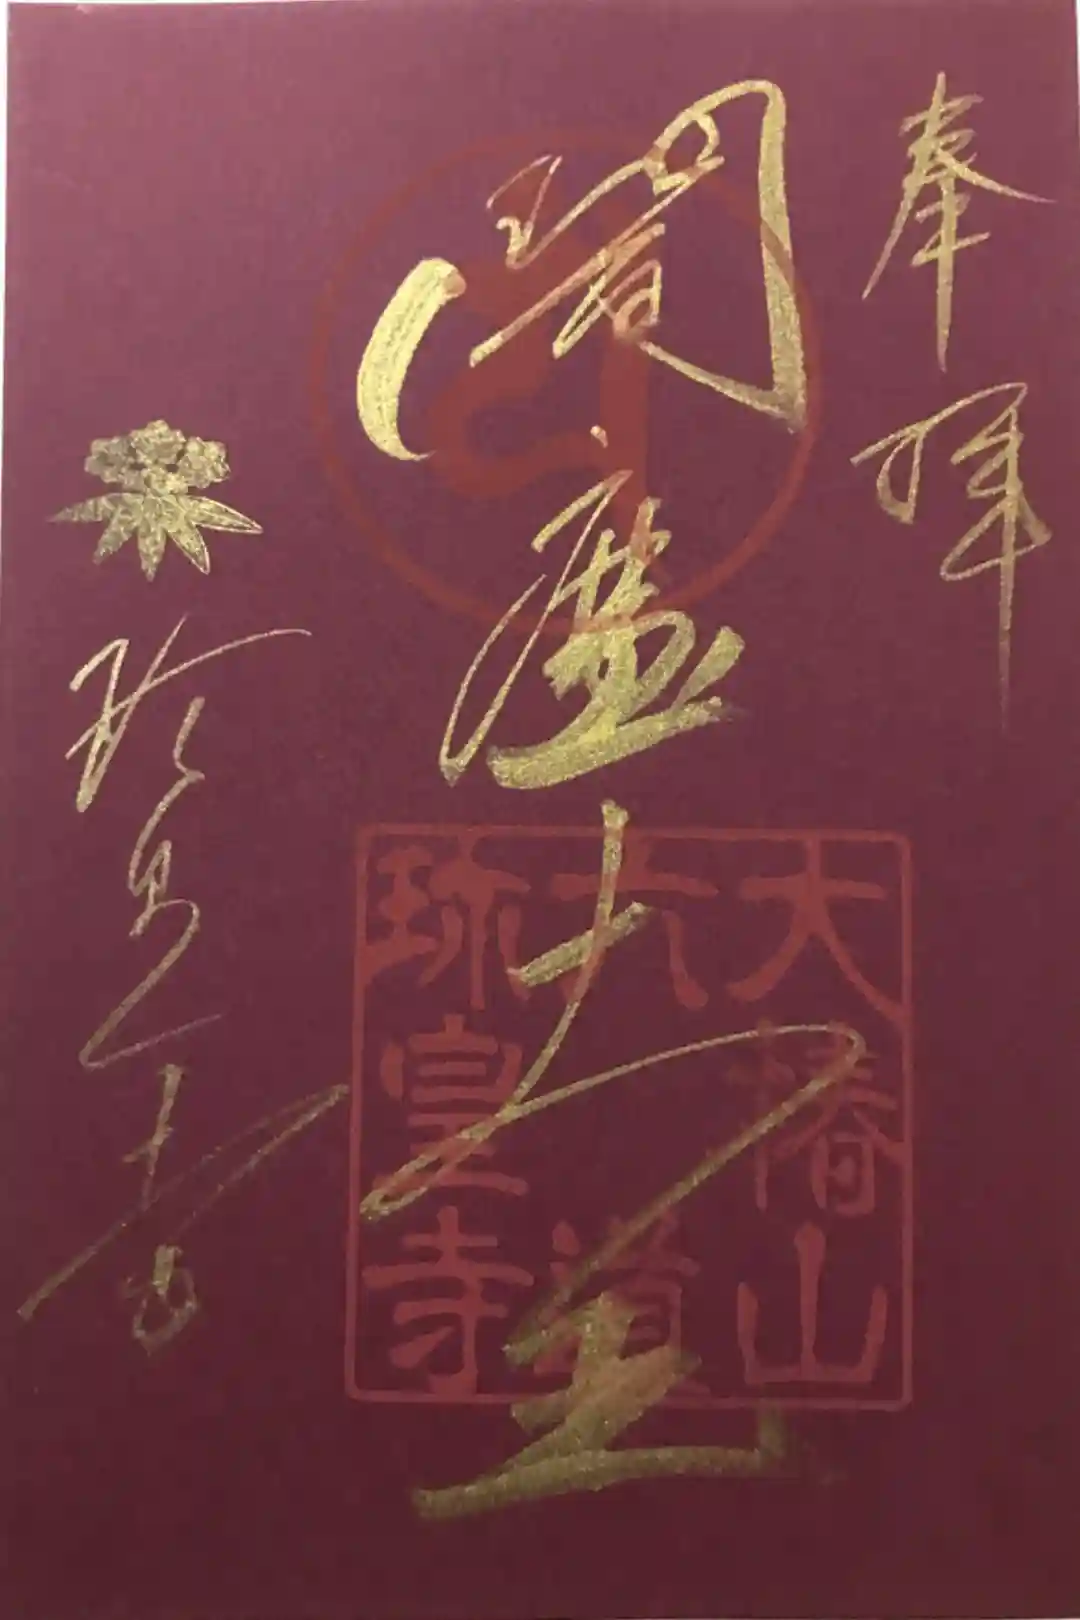 奉拝
閻魔大王
珎皇寺
大椿山
六道
珎皇寺